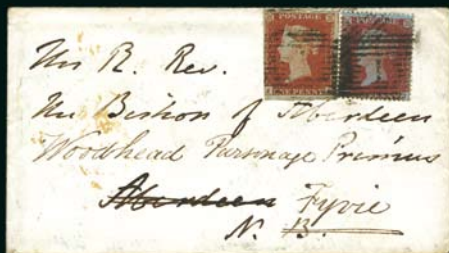 POSTAGE POSTAGE
ONE PENNY
The R. Rev.
The Bishop of Aberdeen
Woodhead Parsonage Primus
Aberdeen Fyvie
N. B.